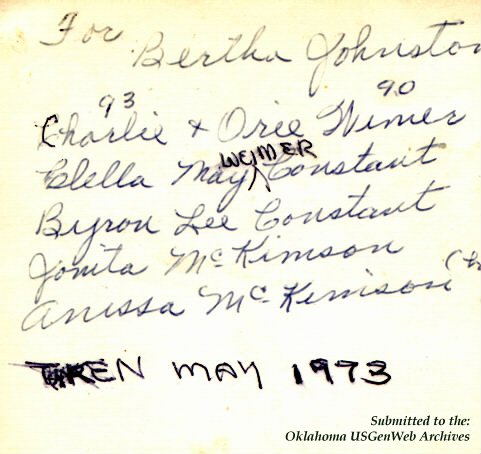 For
Bertha Johnston
93 90
Charlie + Oree Wimer
WEIMER
Clella May Constant
Byron Lee Constant
Jonita McKimson
Anissa McKimison
TAKEN MAY 1973
Submitted to the:
Oklahoma USGenWeb Archives